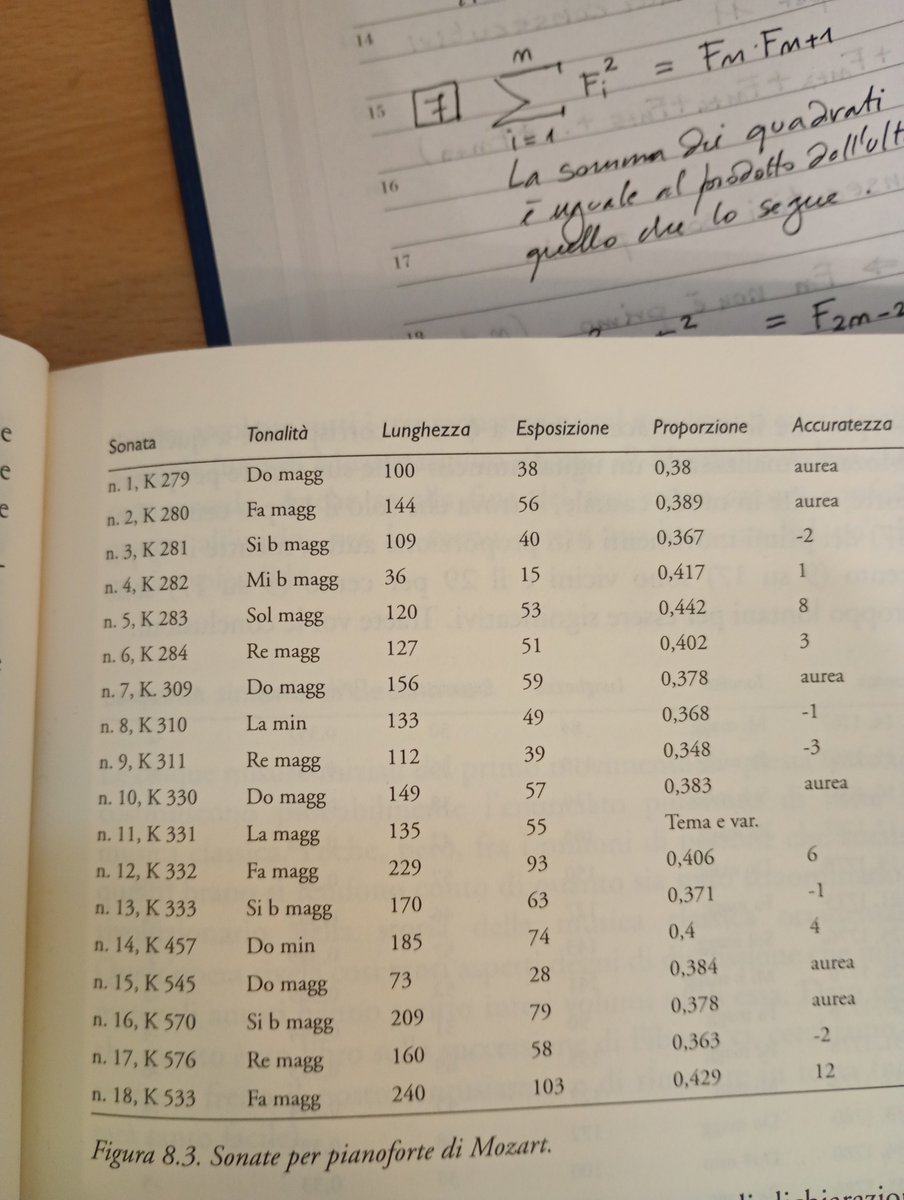 14
15 7 m ∑ i=1 Fi² = Fm·Fm+1
16 La somma dei quadrati
è uguale al prodotto dell'ult
17 quello che lo segue.
= F2m-2
e
e
e
Sonata Tonalità Lunghezza Esposizione Proporzione Accuratezza
n. 1, K 279 Do magg 100 38 0,38 aurea
n. 2, K 280 Fa magg 144 56 0,389 aurea
n. 3, K 281 Si b magg 109 40 0,367 -2
n. 4, K 282 Mi b magg 36 15 0,417 1
n. 5, K 283 Sol magg 120 53 0,442 8
n. 6, K 284 Re magg 127 51 0,402 3
n. 7, K. 309 Do magg 156 59 0,378 aurea
n. 8, K 310 La min 133 49 0,368 -1
n. 9, K 311 Re magg 112 39 0,348 -3
n. 10, K 330 Do magg 149 57 0,383 aurea
n. 11, K 331 La magg 135 55 Tema e var.
n. 12, K 332 Fa magg 229 93 0,406 6
n. 13, K 333 Si b magg 170 63 0,371 -1
n. 14, K 457 Do min 185 74 0,4 4
n. 15, K 545 Do magg 73 28 0,384 aurea
n. 16, K 570 Si b magg 209 79 0,378 aurea
n. 17, K 576 Re magg 160 58 0,363 -2
n. 18, K 533 Fa magg 240 103 0,429 12
Figura 8.3. Sonate per pianoforte di Mozart.